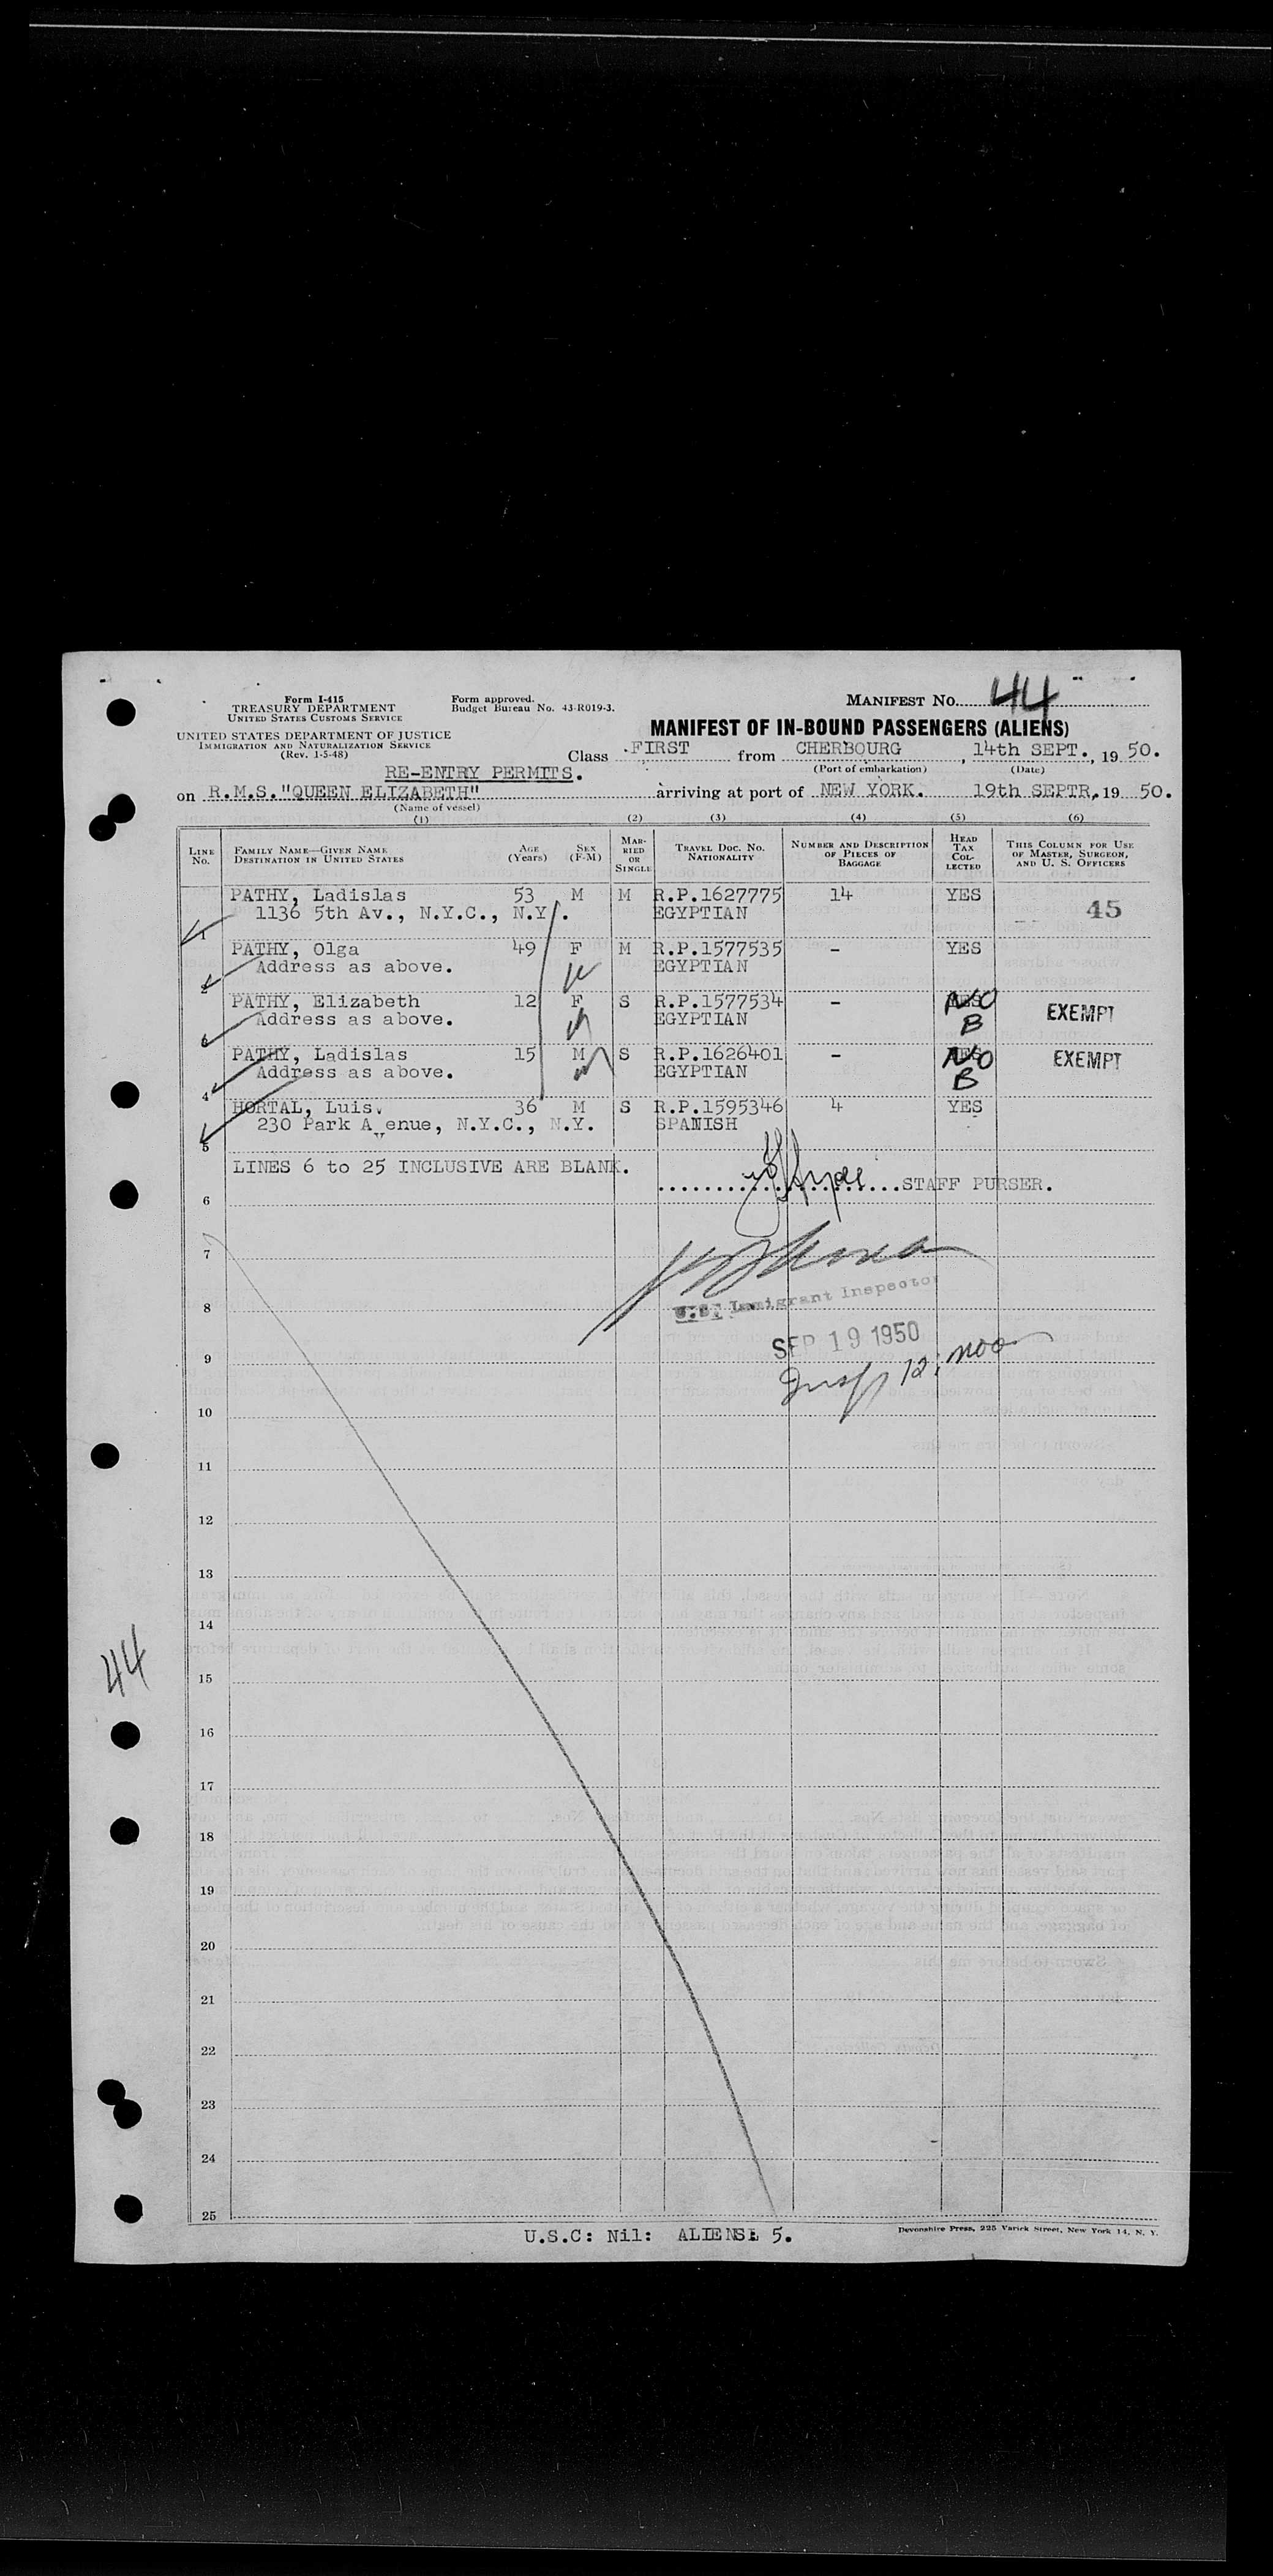 Form I-415
TREASURY DEPARTMENT
UNITED STATES CUSTOMS SERVICE
UNITED STATES DEPARTMENT OF JUSTICE
IMMIGRATION AND NATURALIZATION SERVICE
(Rev. 1-5-48)
Form approved.
Budget Bureau No. 43-R019-3.
MANIFEST No. 44
MANIFEST OF IN-BOUND PASSENGERS (ALIENS)
Class FIRST from CHERBOURG, 14th SEPT., 1950.
(Port of embarkation) (Date)
RE-ENTRY PERMITS.
on R.M.S."QUEEN ELIZABETH" arriving at port of NEW YORK. 19th SEPTR, 1950.
(Name of vessel)
(1) (2) (3) (4) (5) (6)
LINE No. FAMILY NAME—GIVEN NAME DESTINATION IN UNITED STATES AGE (Years) SEX (F-M) MARRIED OR SINGLE TRAVEL DOC. NO. NATIONALITY NUMBER AND DESCRIPTION OF PIECES OF BAGGAGE HEAD TAX COLLECTED THIS COLUMN FOR USE OF MASTER, SURGEON, AND U. S. OFFICERS
PATHY, Ladislas 53 M M R.P.1627775 14 YES
1136 5th Av., N.Y.C., N.Y. EGYPTIAN 45
1
PATHY, Olga 49 F M R.P.1577535 - YES
Address as above. EGYPTIAN
2
PATHY, Elizabeth 12 F S R.P.1577534 - NO EXEMPT
Address as above. EGYPTIAN B
PATHY, Ladislas 15 M S R.P.1626401 - NO EXEMPT
Address as above. EGYPTIAN B
4
HORTAL, Luis. 36 M S R.P.1595346 4 YES
230 Park Avenue, N.Y.C., N.Y. SPANISH
5
LINES 6 to 25 INCLUSIVE ARE BLANK.
STAFF PURSER.
6
7
U.S. Immigrant Inspector
8
SEP 19 1950
9
10
11
12
13
14
44
15
16
17
18
19
20
21
22
23
24
25
U.S.C: Nil: ALIENS: 5.
Devonshire Press, 225 Varick Street, New York 14, N. Y.